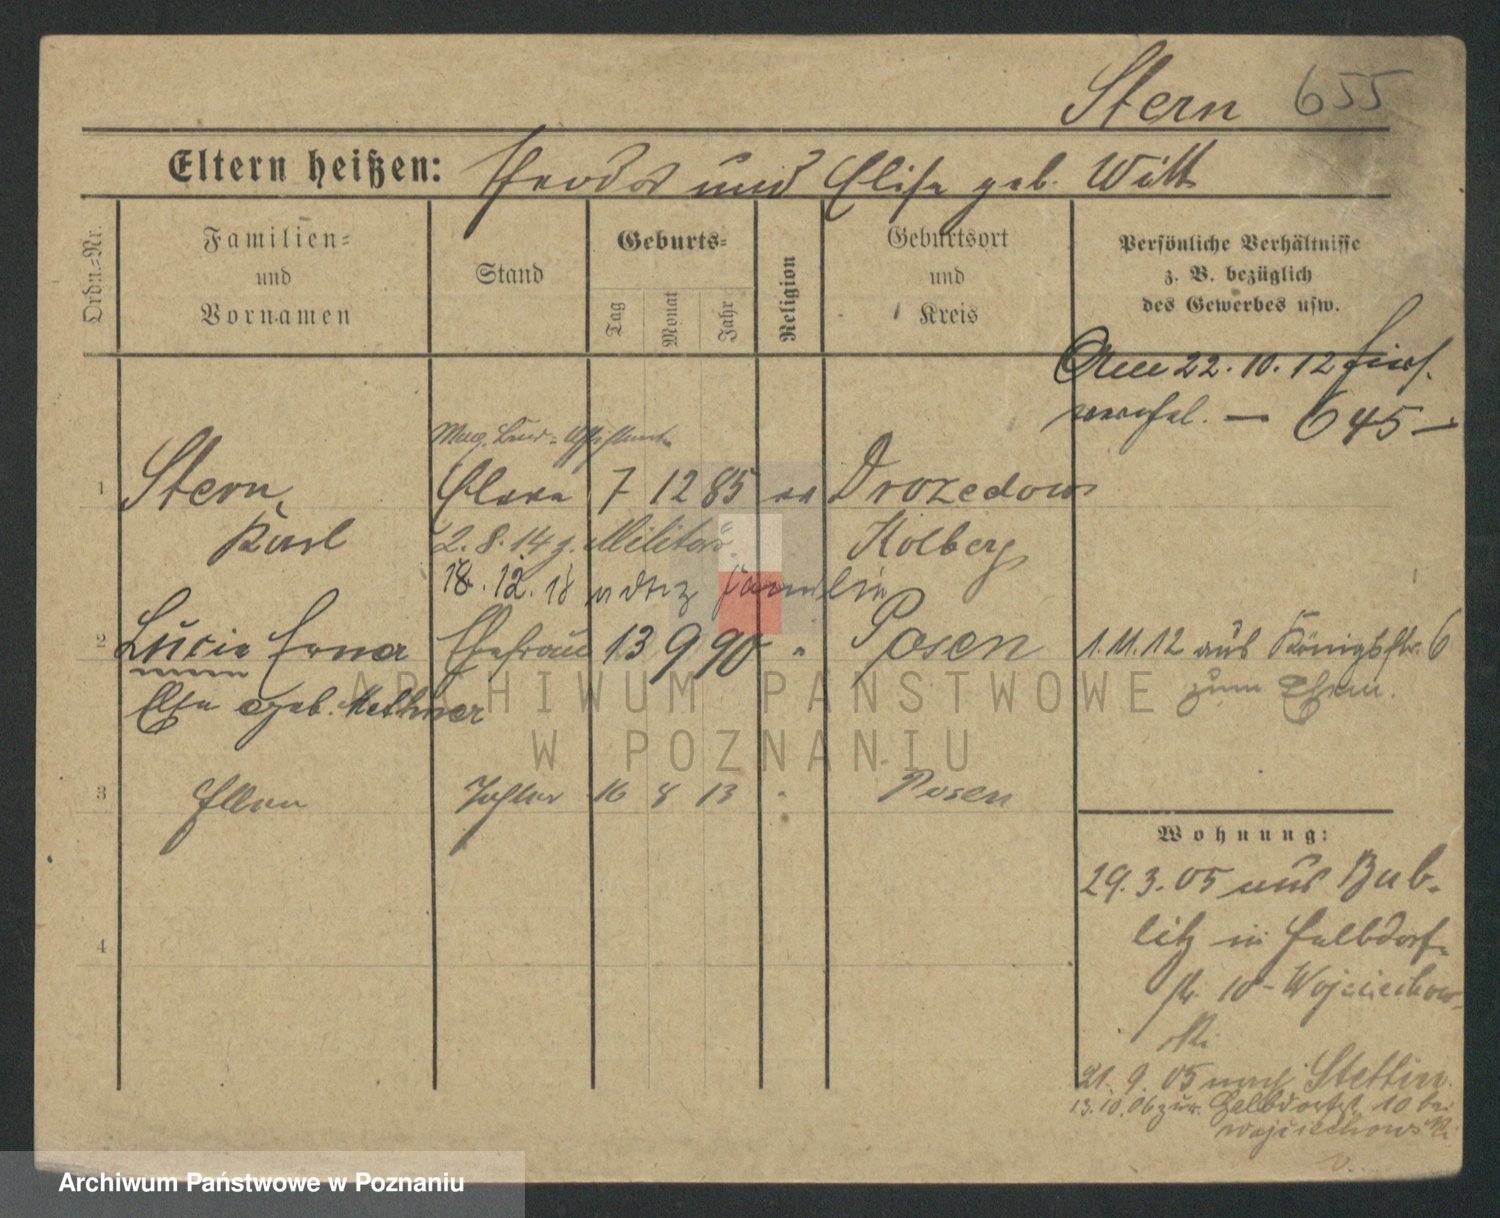 Stern 655
Eltern heißen: Theodor und Elise geb. Witt
Ordn.-Nr.
Familien-
und
Vornamen
Stand
Geburts-
Tag
Monat
Jahr
Religion
Geburtsort
und
Kreis
Persönliche Verhältnisse
z. B. bezüglich
des Gewerbes usw.
Am 22.10.12
— 645 —
1 Stern, 7 12 85 Drozedow
Karl 2.8.14 z. Militär. Kolberg
18.12.18
2 Lucie Erna Ehefrau 13 9 90 " Posen 1.11.12 aus Königsstr. 6
Else geb. zum Ehem.
3 Ellen Tochter 16 8 13 " Posen
4
Wohnung:
29.3.05 aus Bub-
litz in Halbdorf-
str. 10 - Wojciechow-
ski
21.9.05 nach Stettin.
13.10.06 zur. Halbdorfst. 10 bei
Wojciechowski
ARCHIWUM PAŃSTWOWE
W POZNANIU
Archiwum Państwowe w Poznaniu